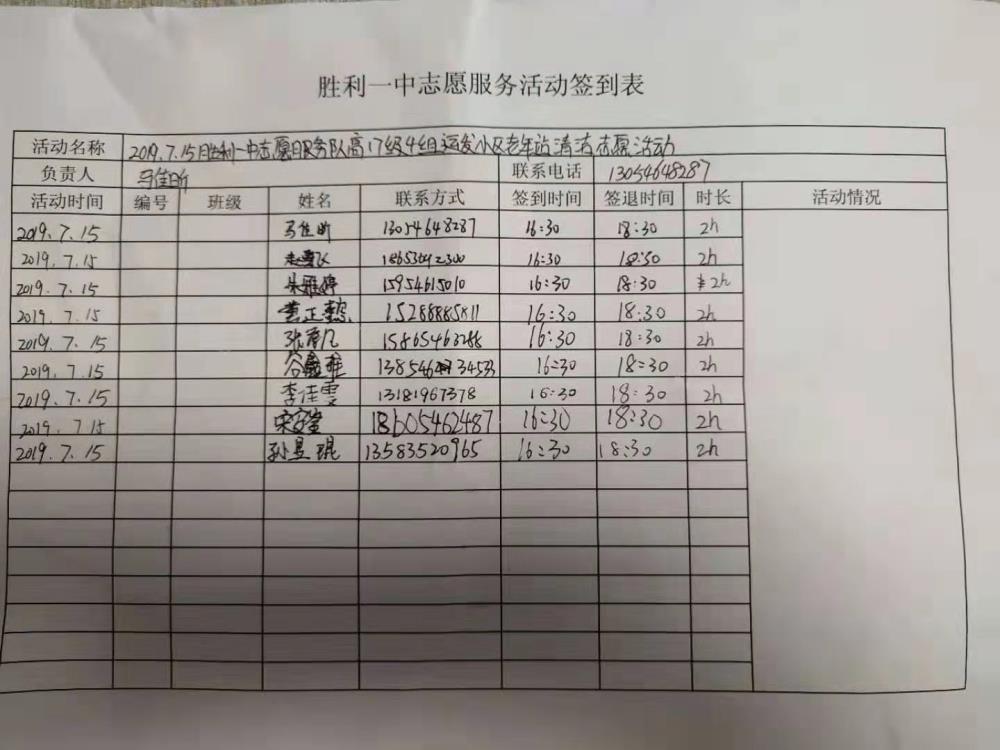 胜利一中志愿服务活动签到表
活动名称 2019.7.15胜利一中志愿服务队高17级4组运发小区老年站清洁志愿活动
负责人 马佳昕 联系电话 13054648287
活动时间 编号 班级 姓名 联系方式 签到时间 签退时间 时长 活动情况
2019.7.15 马佳昕 13054648287 16:30 18:30 2h
2019.7.15 16:30 18:30 2h
2019.7.15 朱雅婷 15954615010 16:30 18:30 2h
2019.7.15 黄正懿 15288885811 16:30 18:30 2h
2019.7.15 15865463288 16:30 18:30 2h
2019.7.15 16:30 18:30 2h
2019.7.15 李佳雯 13181967378 16:30 18:30 2h
2019.7.15 18605462487 16:30 18:30 2h
2019.7.15 孙昱琨 13583520965 16:30 18:30 2h